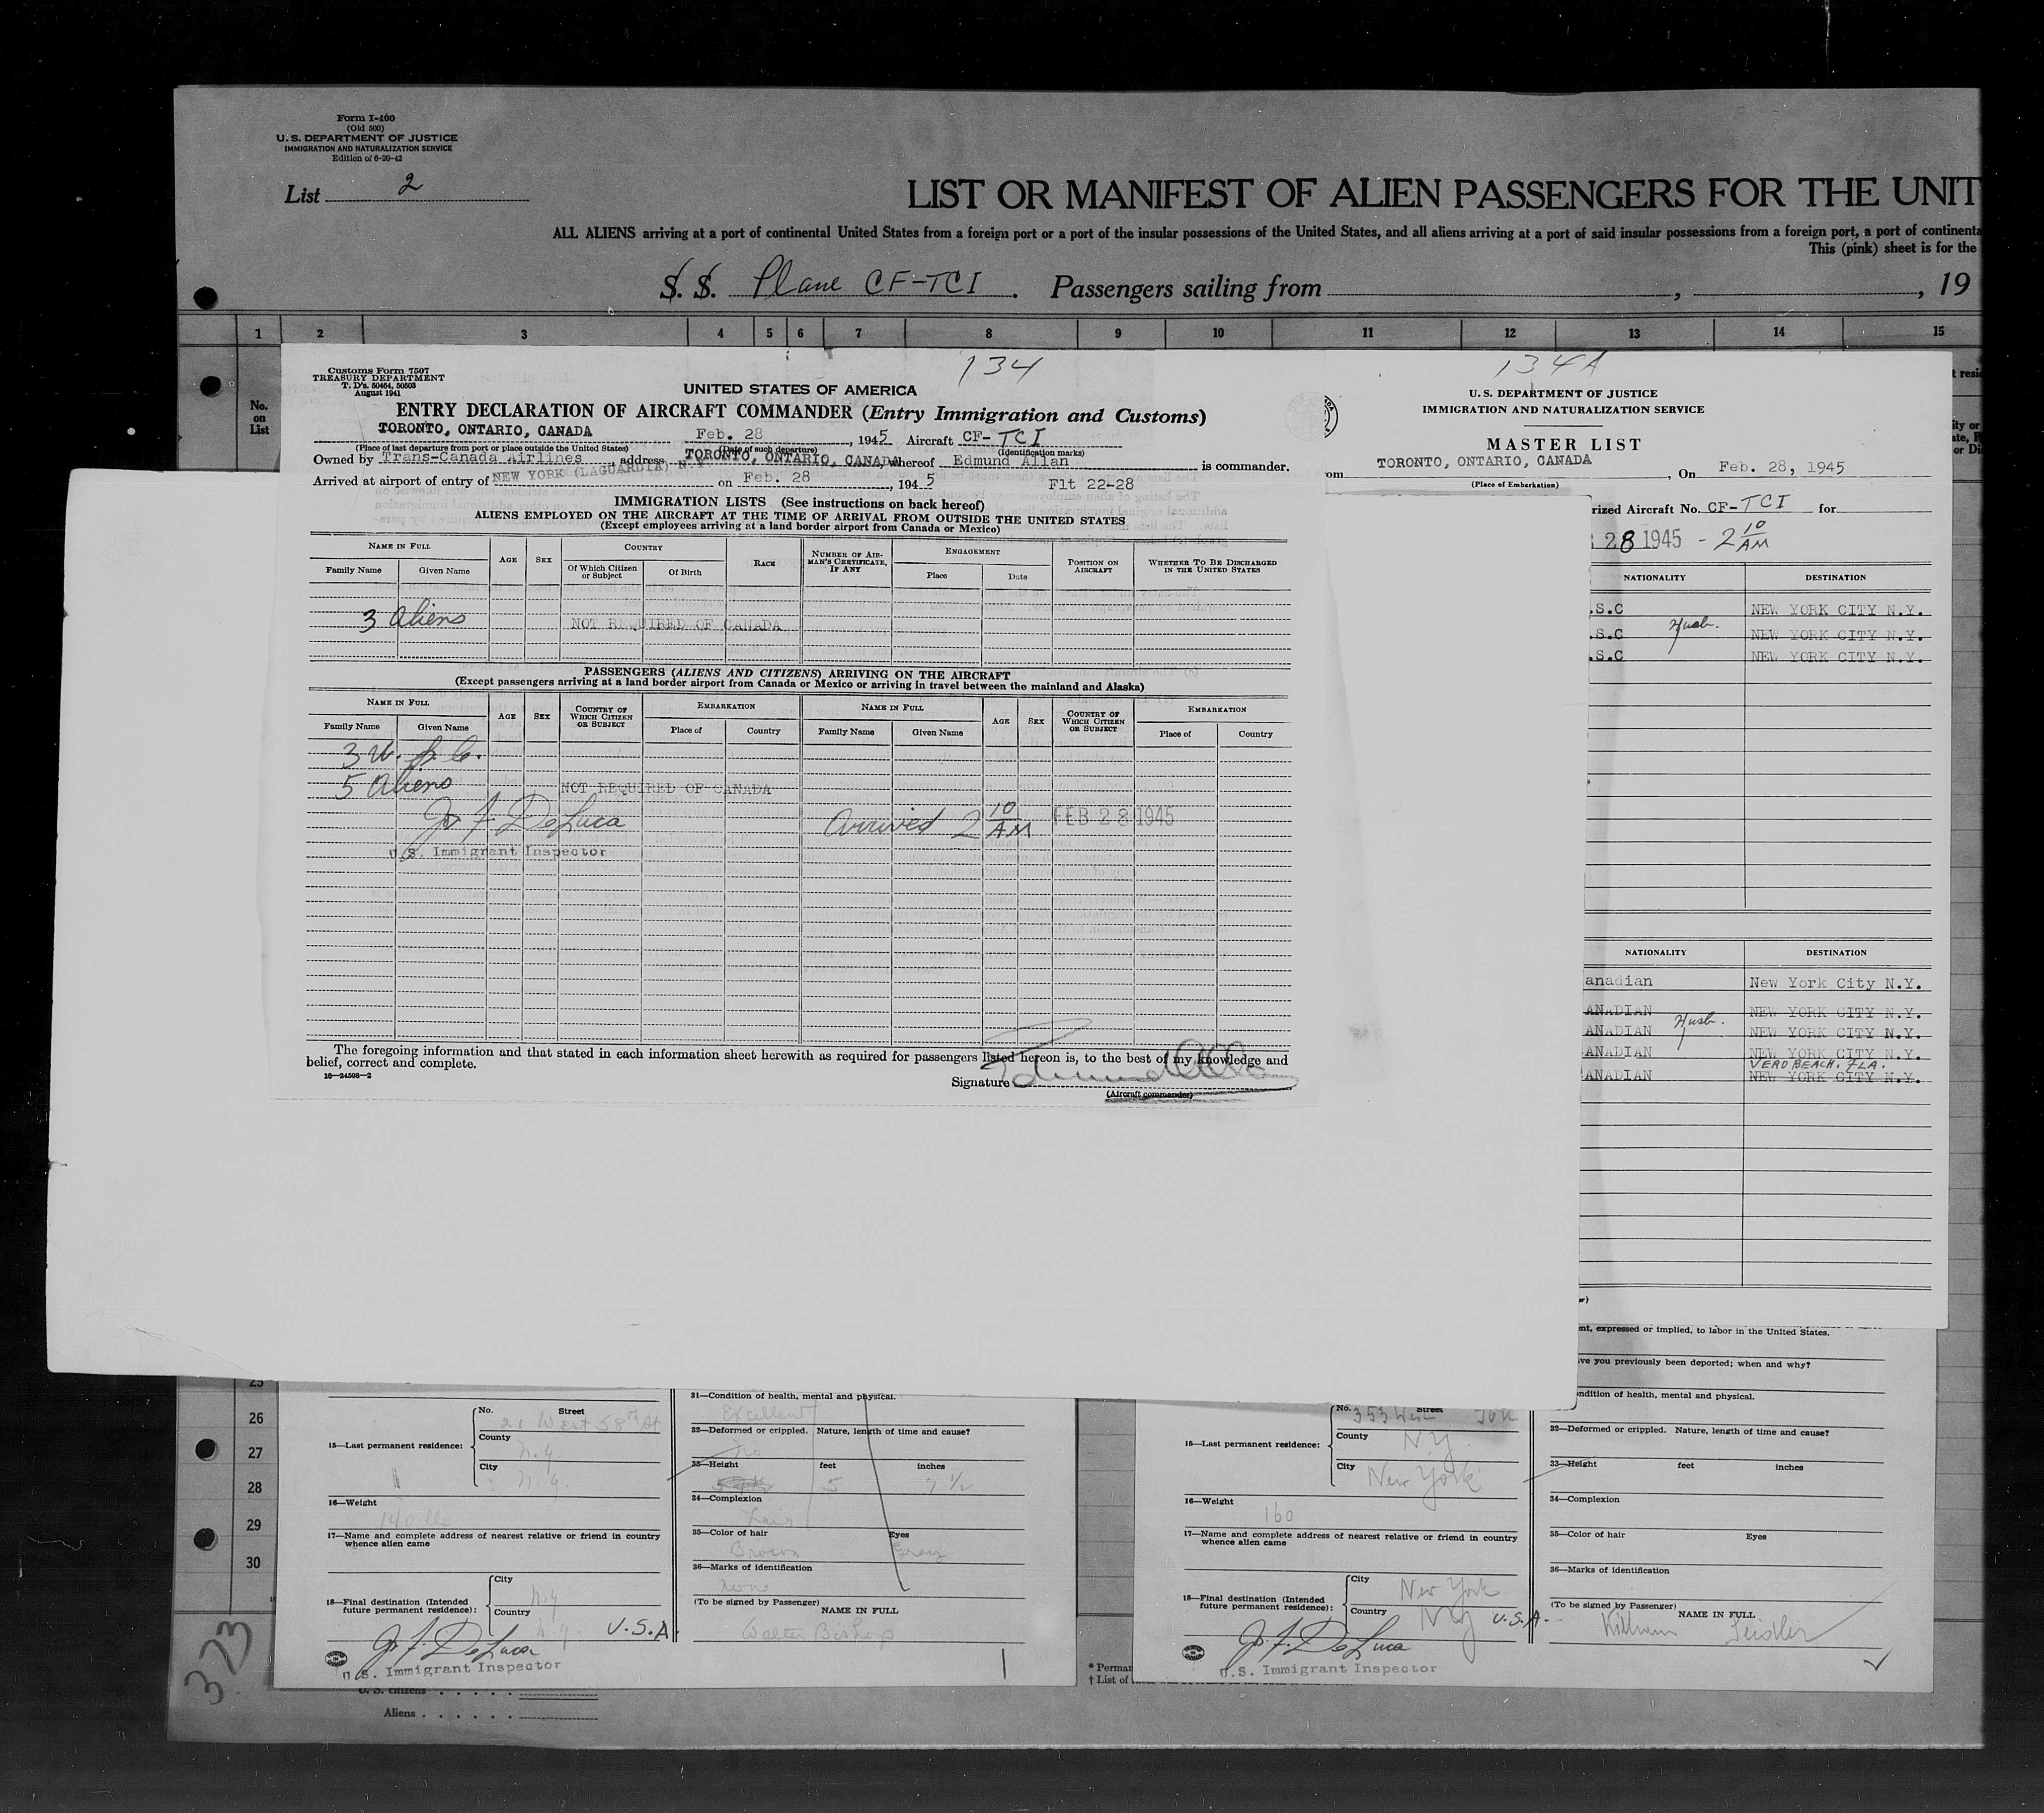 Form I-400
(Old 500)
U. S. DEPARTMENT OF JUSTICE
IMMIGRATION AND NATURALIZATION SERVICE
Edition of 6-20-42
List 2
LIST OR MANIFEST OF ALIEN PASSENGERS FOR THE UNIT
ALL ALIENS arriving at a port of continental United States from a foreign port or a port of the insular possessions of the United States, and all aliens arriving at a port of said insular possessions from a foreign port, a port of continenta
This (pink) sheet is for the
S. S. Plane CF-TCI . Passengers sailing from , , 19
1 2 3 4 5 6 7 8 9 10 11 12 13 14 15
No. on List
134
Customs Form 7507
TREASURY DEPARTMENT
T. D's. 50464, 50503
August 1941
UNITED STATES OF AMERICA
ENTRY DECLARATION OF AIRCRAFT COMMANDER (Entry Immigration and Customs)
TORONTO, ONTARIO, CANADA Feb. 28, 1945 Aircraft CF-TCI
(Place of last departure from port or place outside the United States) (Date of such departure) (Identification marks)
Owned by Trans-Canada Airlines, address TORONTO, ONTARIO, CANADA whereof Edmund Allan is commander.
Arrived at airport of entry of NEW YORK (LAGUARDIA) N.Y on Feb. 28, 1945 Flt 22-28
IMMIGRATION LISTS (See instructions on back hereof)
ALIENS EMPLOYED ON THE AIRCRAFT AT THE TIME OF ARRIVAL FROM OUTSIDE THE UNITED STATES
(Except employees arriving at a land border airport from Canada or Mexico)
NAME IN FULL AGE SEX COUNTRY RACE NUMBER OF AIRMAN'S CERTIFICATE, IF ANY ENGAGEMENT POSITION ON AIRCRAFT WHETHER TO BE DISCHARGED IN THE UNITED STATES
Family Name Given Name Of Which Citizen or Subject Of Birth Place Date
3 Aliens NOT REQUIRED OF CANADA
PASSENGERS (ALIENS AND CITIZENS) ARRIVING ON THE AIRCRAFT
(Except passengers arriving at a land border airport from Canada or Mexico or arriving in travel between the mainland and Alaska)
NAME IN FULL AGE SEX COUNTRY OF WHICH CITIZEN OR SUBJECT EMBARKATION NAME IN FULL AGE SEX COUNTRY OF WHICH CITIZEN OR SUBJECT EMBARKATION
Family Name Given Name Place of Country Family Name Given Name Place of Country
3 U. S. C.
5 Aliens NOT REQUIRED OF CANADA
Jo. F. DeLuca Arrived 2 10 AM FEB 28 1945
U.S. Immigrant Inspector
The foregoing information and that stated in each information sheet herewith as required for passengers listed hereon is, to the best of my knowledge and
belief, correct and complete.
16—24598-2
Signature Edmund Allan
(Aircraft commander)
134A
U. S. DEPARTMENT OF JUSTICE
IMMIGRATION AND NATURALIZATION SERVICE
MASTER LIST
om TORONTO, ONTARIO, CANADA, On Feb. 28, 1945
(Place of Embarkation)
rized Aircraft No. CF-TCI for
28 1945 - 2 10 AM
NATIONALITY DESTINATION
.S.C NEW YORK CITY N.Y.
.S.C Husb. NEW YORK CITY N.Y.
.S.C NEW YORK CITY N.Y.
NATIONALITY DESTINATION
anadian New York City N.Y.
ANADIAN NEW YORK CITY N.Y.
ANADIAN Husb. NEW YORK CITY N.Y.
ANADIAN NEW YORK CITY N.Y.
VERO BEACH, FLA.
ANADIAN NEW YORK CITY N.Y.
25
26
27
28
29
30
15—Last permanent residence: No. Street 21 West 58th St
County N.Y.
City N.Y.
16—Weight
140 lbs
17—Name and complete address of nearest relative or friend in country
whence alien came
18—Final destination (Intended future permanent residence): City N.Y.
Country N.Y. U.S.A.
Jo. F. DeLuca
U.S. Immigrant Inspector
31—Condition of health, mental and physical.
Excellent
32—Deformed or crippled. Nature, length of time and cause?
No
33—Height feet inches
5 7 1/2
34—Complexion
Fair
35—Color of hair Eyes
Brown Gray
36—Marks of identification
None
(To be signed by Passenger)
NAME IN FULL
Walter Bishop
U. S. citizens
Aliens
323
* Perman
† List of
15—Last permanent residence: No. 353 West Street
County N.Y.
City New York
16—Weight
160
17—Name and complete address of nearest relative or friend in country
whence alien came
18—Final destination (Intended future permanent residence): City New York
Country NY U.S.A.
Jo. F. DeLuca
U.S. Immigrant Inspector
nt, expressed or implied, to labor in the United States.
ve you previously been deported; when and why?
ndition of health, mental and physical.
32—Deformed or crippled. Nature, length of time and cause?
33—Height feet inches
34—Complexion
35—Color of hair Eyes
36—Marks of identification
(To be signed by Passenger)
NAME IN FULL
William Seidler